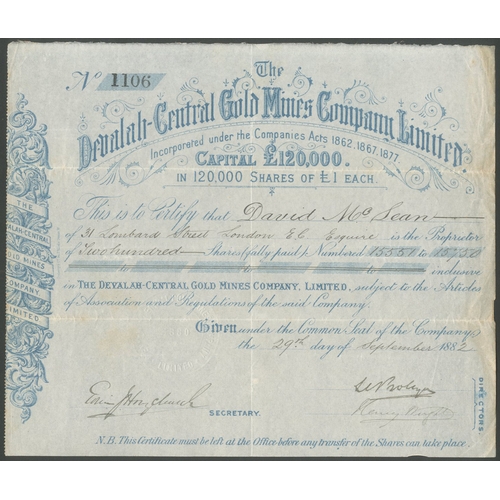 No 1106
The
Devalah-Central Gold Mines Company, Limited
Incorporated under the Companies Acts 1862, 1867, 1877.
CAPITAL £120,000.
IN 120,000 SHARES OF £1 EACH.
This is to Certify that David McLean
of 31 Lombard Street London E.C. Esquire is the Proprietor
of Two hundred Shares (fully paid) Numbered 15551 to 15750
to to inclusive
in THE DEVALAH-CENTRAL GOLD MINES COMPANY, LIMITED, subject to the Articles
of Association and Regulations of the said Company.
Given under the Common Seal of the Company
the 29th day of September 1882
SECRETARY.
DIRECTORS.
N.B. This Certificate must be left at the Office before any transfer of the Shares can take place.
THE
DEVALAH-CENTRAL
GOLD MINES
COMPANY
LIMITED